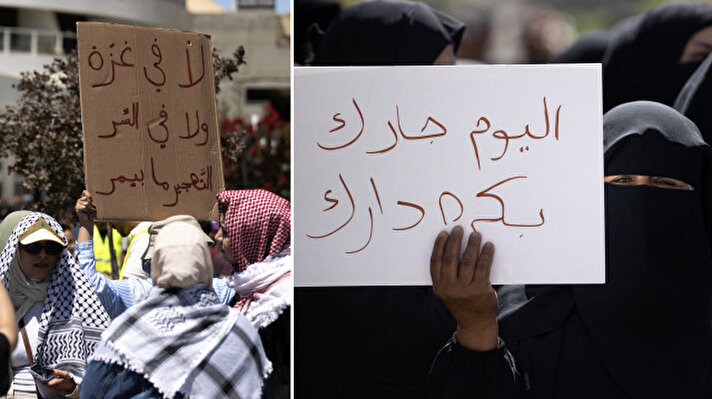 لا في غزة
ولا في السر
التهجير ما بيمر
اليوم جارك
بكره دارك